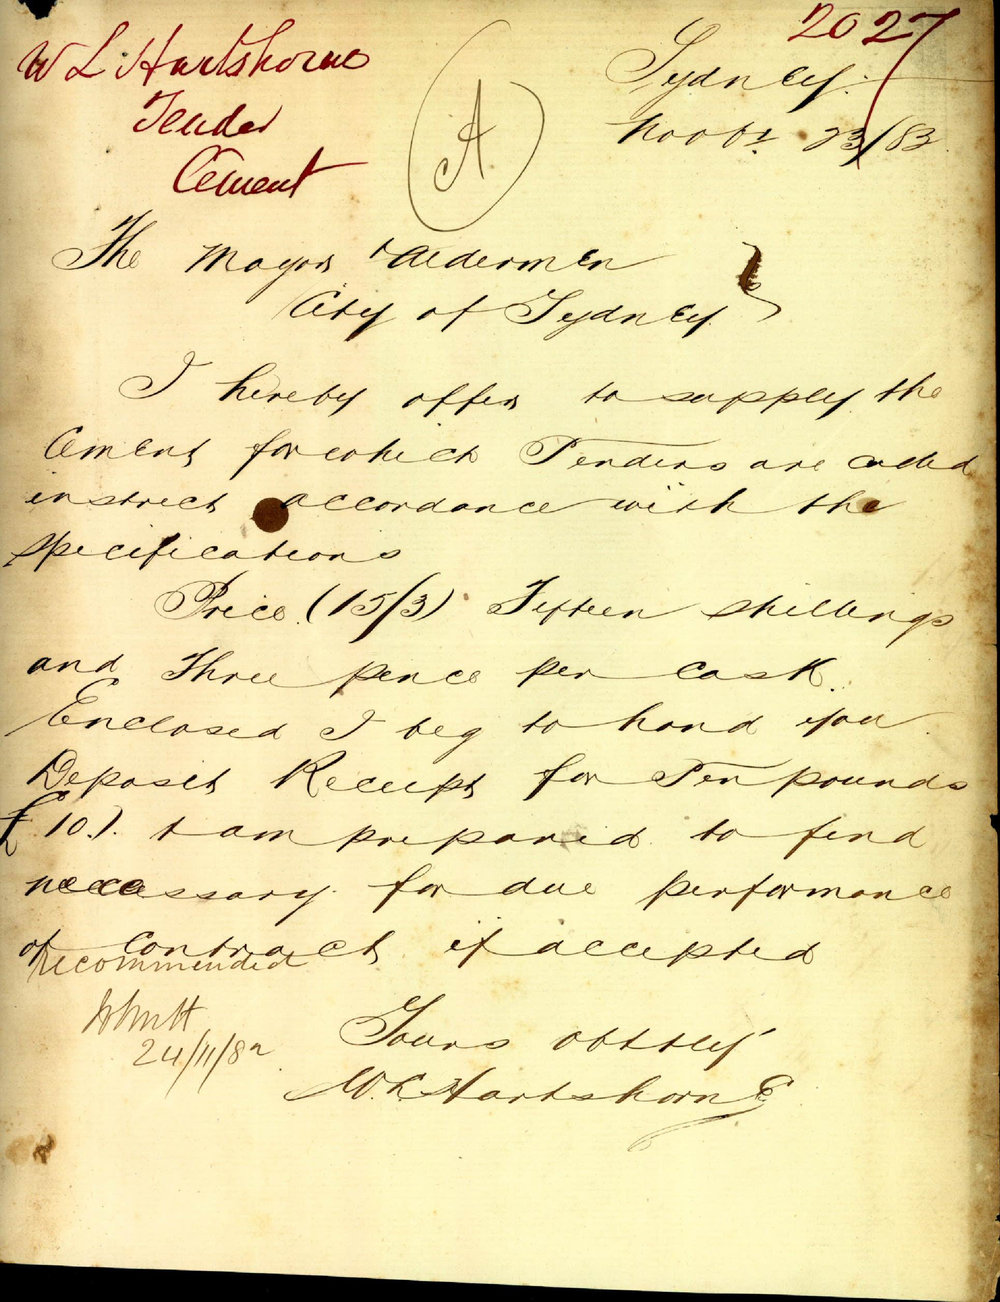 2027
W L Hartshorne
Tender
Cement
A.
Sydney.
Novbr 23/83
The Mayor & Aldermen
City of Sydney.
I hereby offer to supply the
Cement for which Tenders are called
in strict accordance with the
specifications
Price (15/3) Fifteen shillings
and Three pence per cask.
Enclosed I beg to hand you
Deposit Receipt for Ten pounds
£10.). & am prepared to find
necessary for due performance
of contract if accepted
Recommended
24/11/82
Yours obtly
W. L. Hartshorne